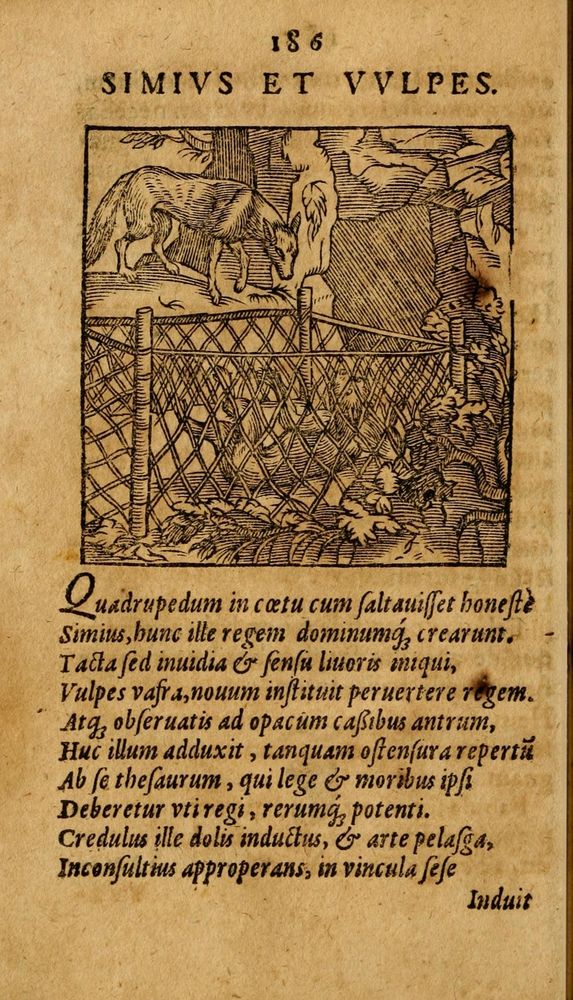 186
SIMIVS ET VVLPES.
Quadrupedum in cœtu cum ſaltauiſſet honeſtè
Simius, hunc ille regem dominumq́; crearunt.
Tacta ſed inuidia & ſenſu liuoris iniqui,
Vulpes vafra, nouum inſtituit peruertere regem.
Atq; obſeruatis ad opacum caſsibus antrum,
Huc illum adduxit, tanquam oſtenſura repertũ
Ab ſe theſaurum, qui lege & moribus ipſi
Deberetur vti regi, rerumq́; potenti.
Credulus ille dolis inductus, & arte pelaſga,
Inconſultius approperans, in vincula ſeſe
Induit